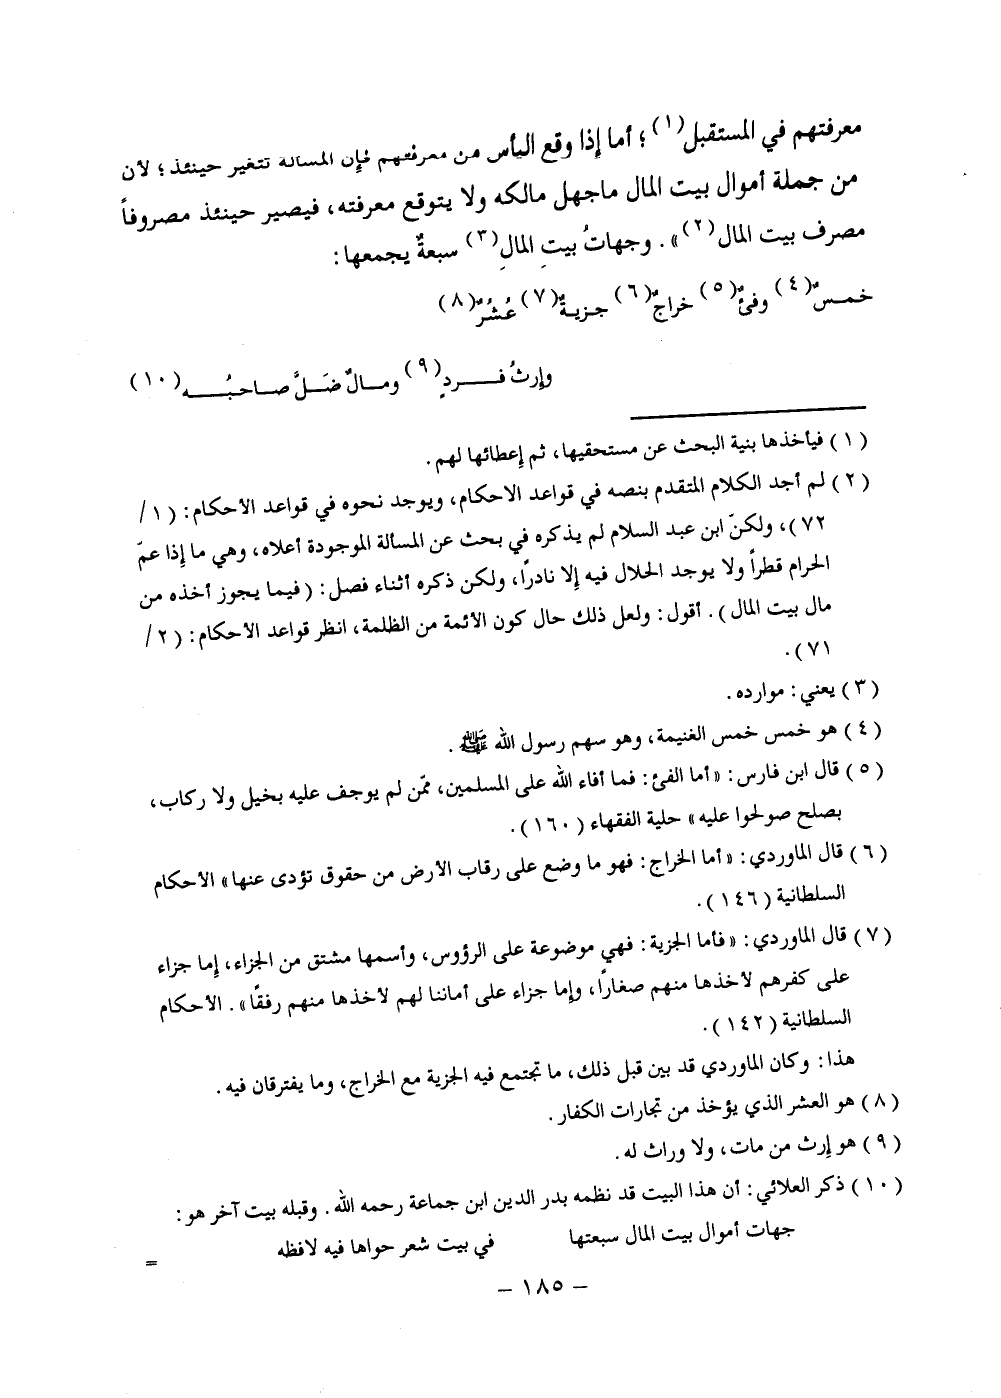 معرفتهم في المستقبل(١) ؛ أما إذا وقع اليأس من معرفتهم فإن المسألة تتغير حينئذ ؛ لأن
من جملة أموال بيت المال ماجهل مالكه ولا يتوقع معرفته، فيصير حينئذ مصروفاً
مصرف بيت المال(٢)» . وجهاتُ بيتِ المالِ(٣) سبعةٌ يجمعها :
خمــسٌ(٤) وفئٌ(٥) خراجٌ(٦) جـزيـةٌ(٧) عُشُرٌ(٨)
وإرثُ فــــردٍ(٩) ومــالٌ ضَــلَّ صــاحـبُــــه(١٠)
(١) فيأخذها بنية البحث عن مستحقيها، ثم إعطائها لهم.
(٢) لم أجد الكلام المتقدم بنصه في قواعد الاحكام، ويوجد نحوه في قواعد الأحكام : (١/
٧٢)، ولكنّ ابن عبد السلام لم يذكره في بحث عن المسألة الموجودة أعلاه، وهي ما إذا عمّ
الحرام قطراً ولا يوجد الحلال فيه إلا نادرًا، ولكن ذكره أثناء فصل : (فيما يجوز أخذه من
مال بيت المال). أقول : ولعل ذلك حال كون الأئمة من الظلمة، انظر قواعد الأحكام : (٢/
٧١).
(٣) يعني : موارده.
(٤) هو خمس خمس الغنيمة، وهو سهم رسول الله ﷺ .
(٥) قال ابن فارس : «أما الفئ : فما أفاء الله على المسلمين، ممّن لم يوجف عليه بخيل ولا ركاب،
بصلح صولحوا عليه» حلية الفقهاء (١٦٠).
(٦) قال الماوردي : «أما الخراج : فهو ما وضع على رقاب الأرض من حقوق تؤدى عنها» الأحكام
السلطانية (١٤٦).
(٧) قال الماوردي : «فأما الجزية : فهي موضوعة على الرؤوس، وأسمها مشتق من الجزاء، إما جزاء
على كفرهم لأخذها منهم صغاراً، وإما جزاء على أماننا لهم لأخذها منهم رفقًا». الأحكام
السلطانية (١٤٢).
هذا : وكان الماوردي قد بين قبل ذلك، ما تجتمع فيه الجزية مع الخراج، وما يفترقان فيه.
(٨) هو العشر الذي يؤخذ من تجارات الكفار.
(٩) هو إرث من مات، ولا وراث له.
(١٠) ذكر العلائي : أن هذا البيت قد نظمه بدر الدين ابن جماعة رحمه الله. وقبله بيت آخر هو :
جهات أموال بيت المال سبعتها في بيت شعر حواها فيه لافظه
=
– ١٨٥ –